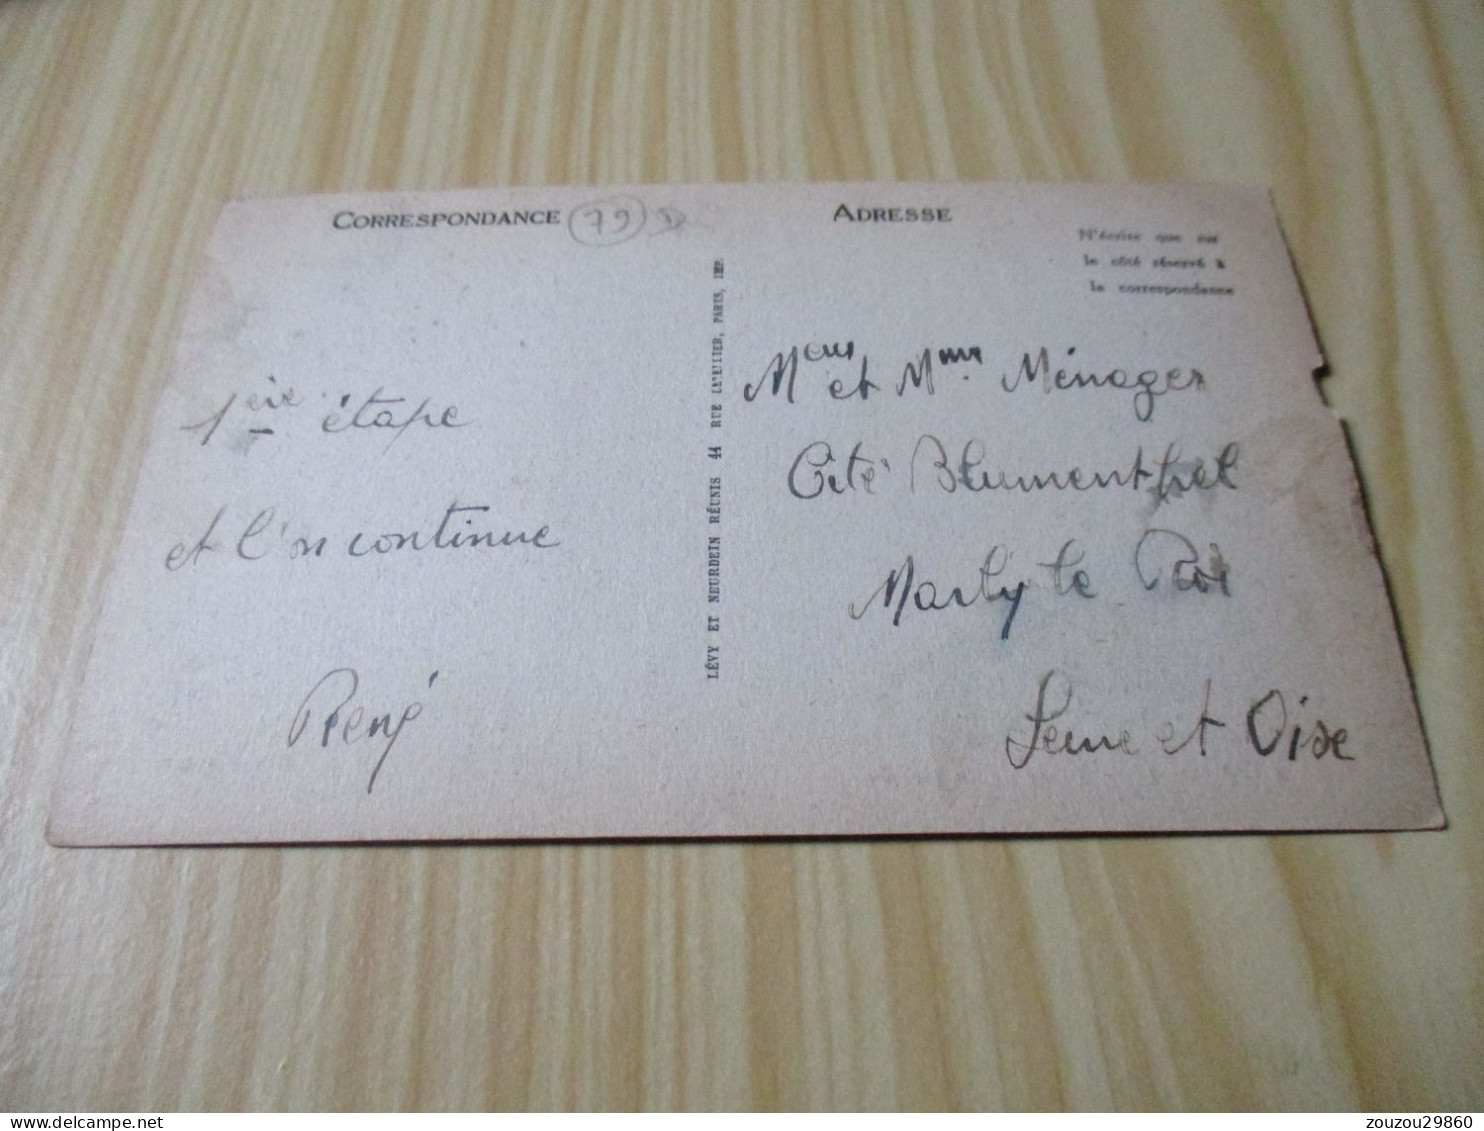 CORRESPONDANCE 79
1ère étape
et l'on continue
René
LÉVY ET NEURDEIN RÉUNIS 44 RUE LETELLIER, PARIS, IMP.
ADRESSE
N'écrire que sur
le côté réservé à
la correspondance
Meur et Mme Ménager
Cité Blumenthal
Marly le Roi
Seine et Oise
zouzou29860